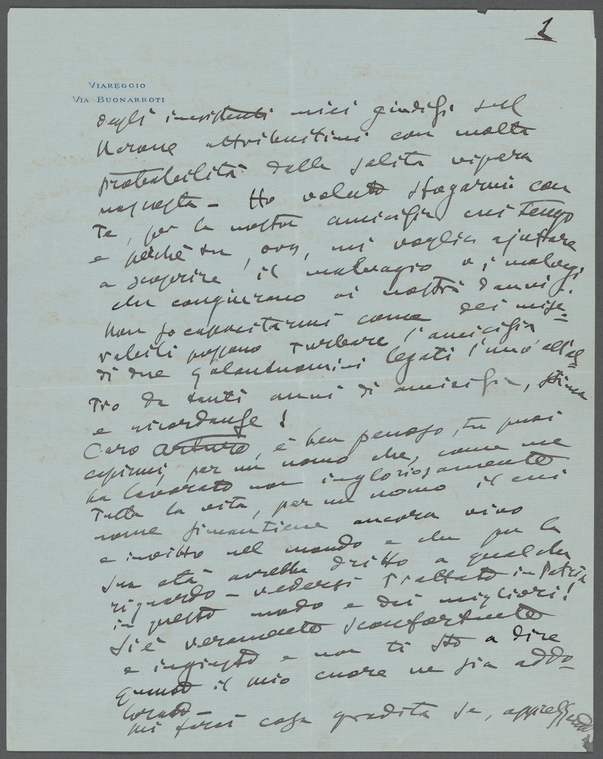 1
VIAREGGIO
VIA BUONARROTI
degli inesistenti miei giudizi sul
Nerone attribuitimi con molta
probabilità dalla solita vipera
nascosta – Ho voluto sfogarmi con
Te, per la nostra amicizia cui tengo
e perché tu, ove, mi voglia ajuttare
a scoprire il malvagio o i malvagi
che congiurano ai nostri danni.
Non so capacitarmi come dei mise-
rabili possano turbare l'amicizia
di due galantuomini legati l'uno all'al-
tro da tanti anni di amicizia, stima
e ricordanze!
Caro Arturo, è ben penoso, tu puoi
capirmi, per un uomo che, come me
ha lavorato non ingloriosamente
tutta la vita, per un uomo il cui
nome si mantiene ancora vivo
e invitto nel mondo e che per la
sua età avrebbe dritto a qualche
riguardo – vedersi trattato in Patria
in questo modo e dai migliori!
Si è veramente sconfortante
e ingiusto e non ti sto a dire
quanto il mio cuore ne sia addo-
lorato –
mi farai cosa gradita se, apprezzando